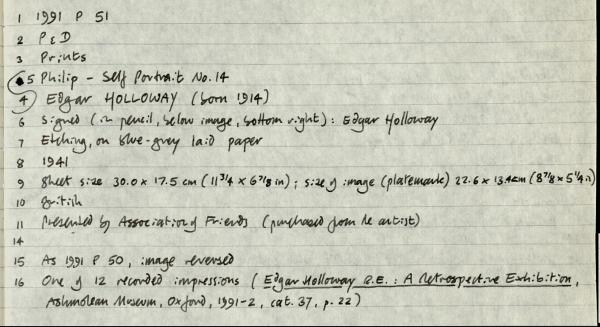 1 1991 P 51
2 P & D
3 Prints
5 Philip - Self Portrait No. 14
4 Edgar HOLLOWAY (born 1914)
6 Signed (in pencil, below image, bottom right): Edgar Holloway
7 Etching, on blue-grey laid paper
8 1941
9 Sheet size 30.0 x 17.5 cm (11 3/4 x 6 7/8 in); size of image (platemark) 22.6 x 13.4 cm (8 7/8 x 5 1/4 in)
10 British
11 Presented by Association of Friends (purchased from the artist)
14
15 As 1991 P 50, image reversed
16 One of 12 recorded impressions (Edgar Holloway R.E.: A Retrospective Exhibition,
Ashmolean Museum, Oxford, 1991-2, cat. 37, p. 22)